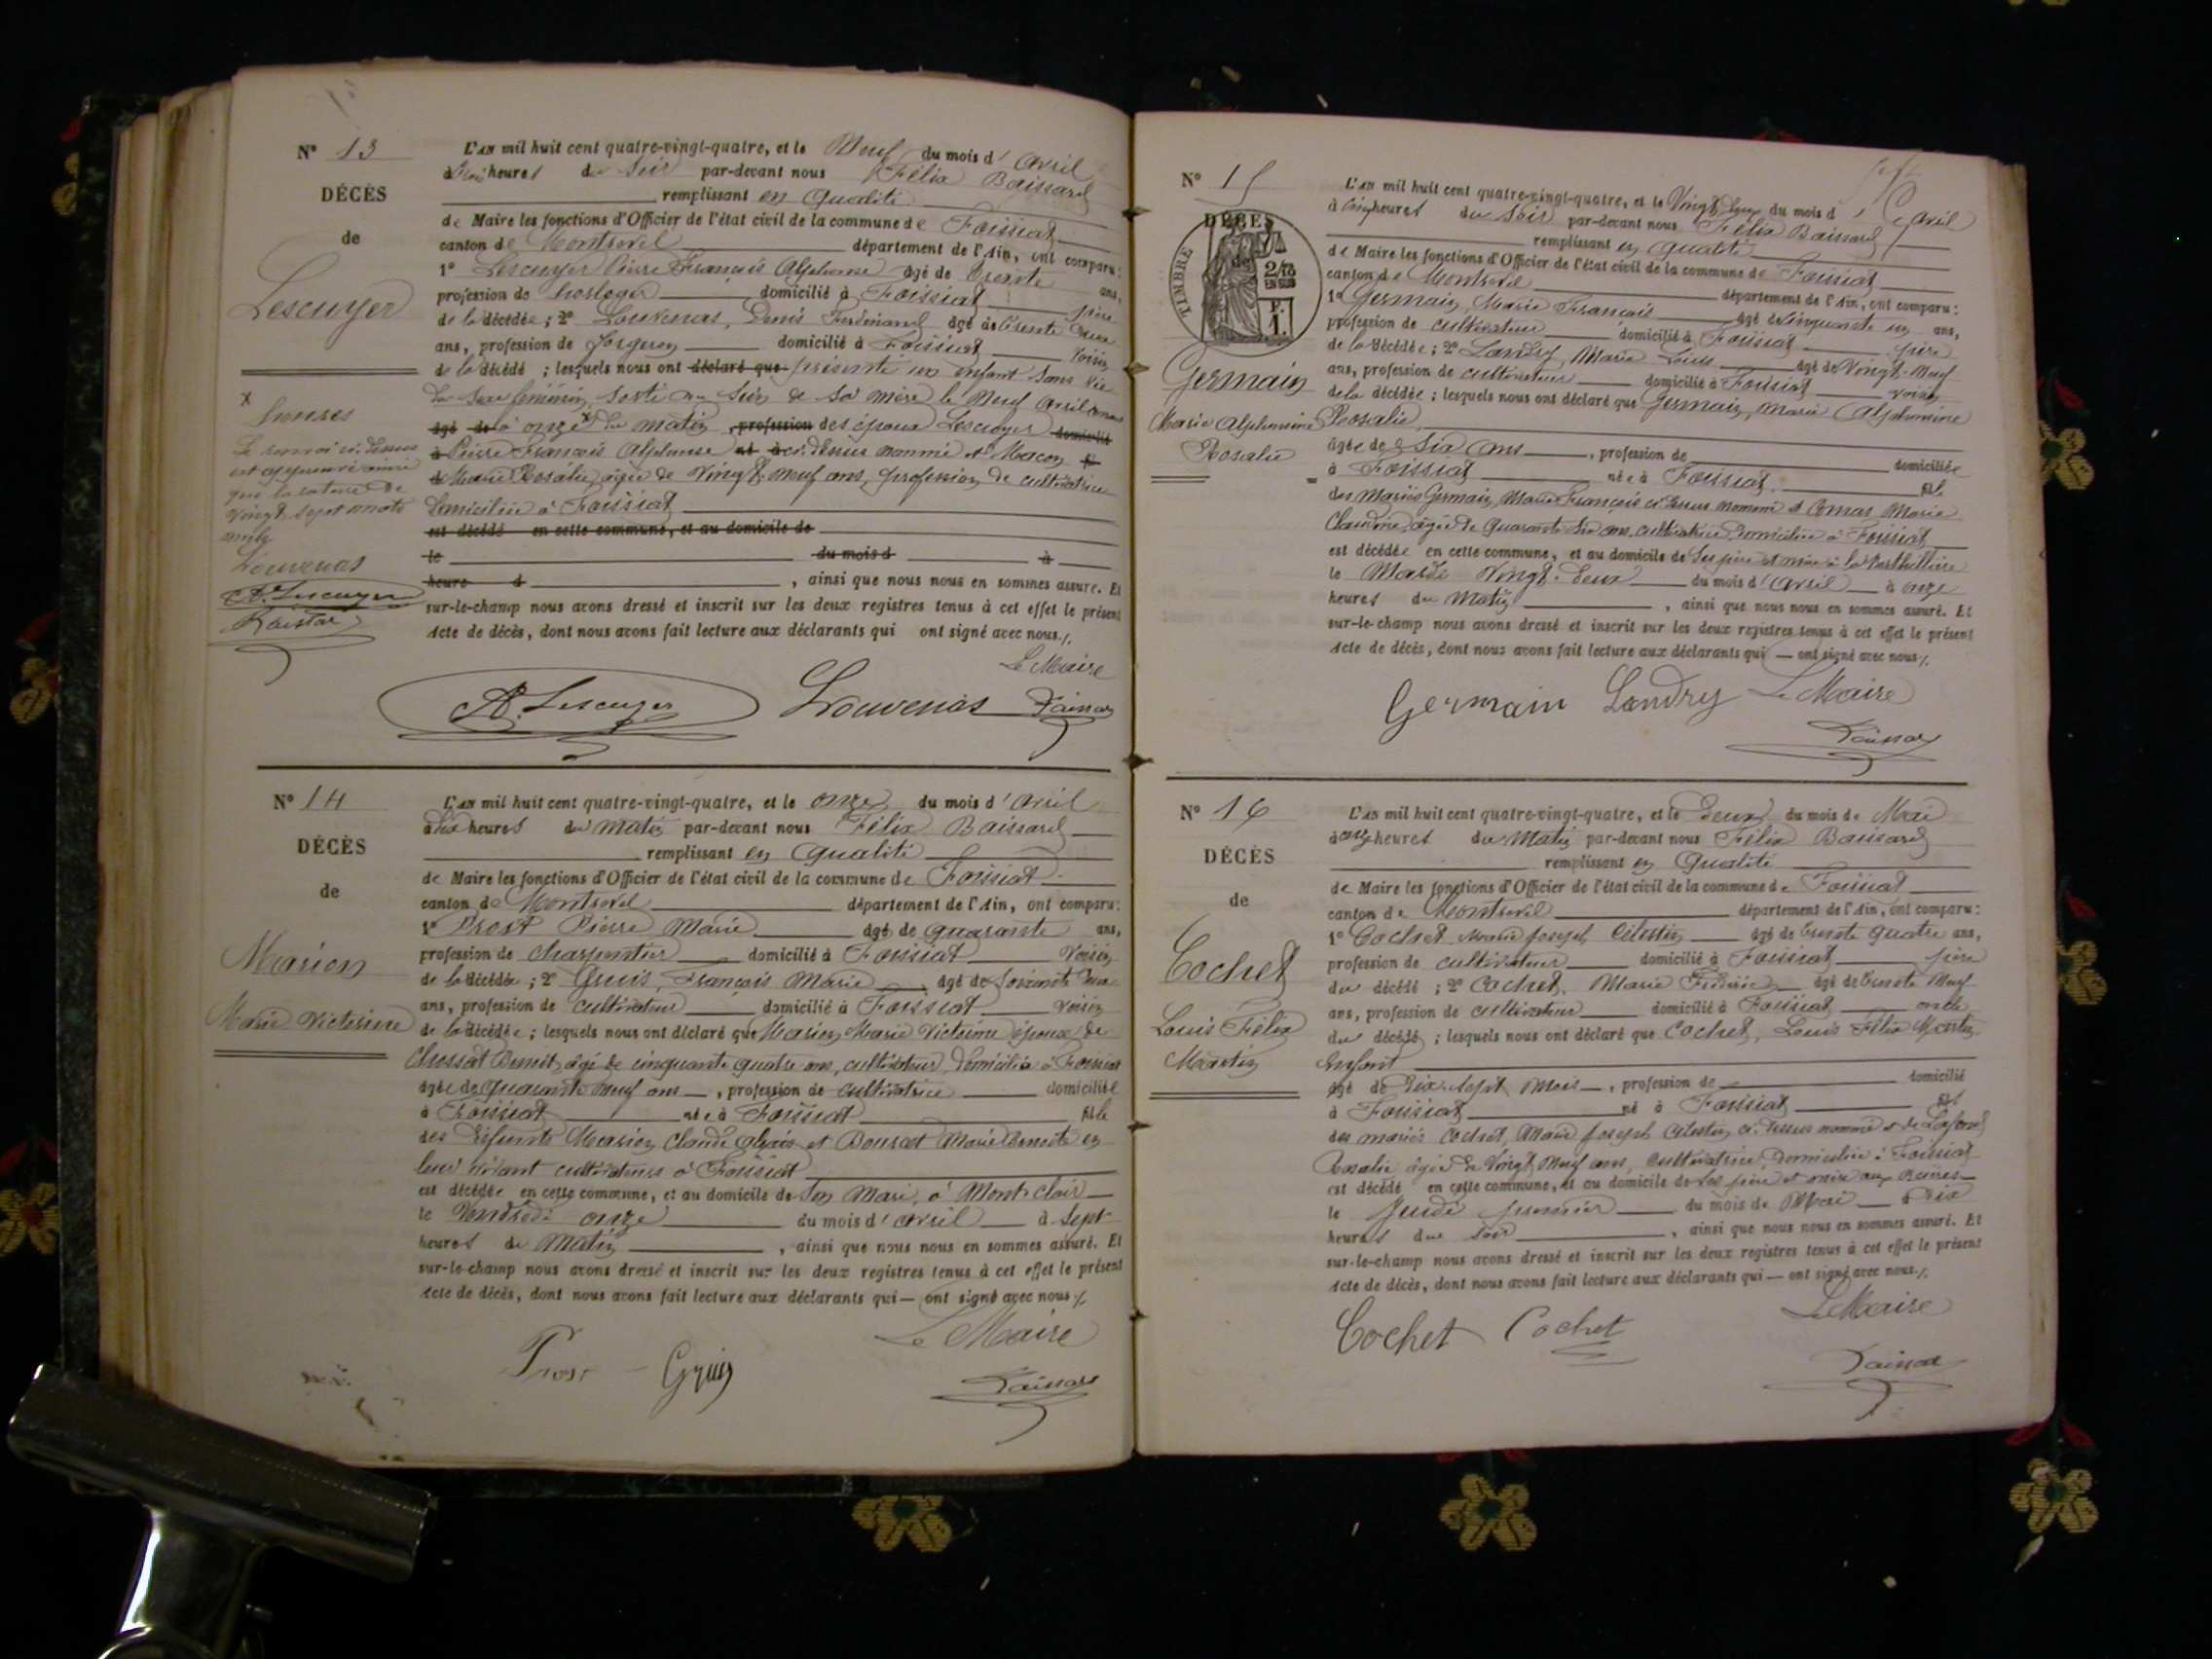 N° 13
DÉCÈS
de
Lescuyer
x
heures
Le renvoi ci-dessus
est approuvé ainsi
que la rature de
vingt-sept mots
nuls
Louvenas
A. Lescuyer
L'AN mil huit cent quatre-vingt-quatre, et le Neuf du mois d'avril
heures du soir par-devant nous Félix Baissard
remplissant en qualité
de Maire les fonctions d'Officier de l'état civil de la commune de Foissiat
canton de Montrevel département de l'Ain, ont comparu:
1° Lescuyer Pierre François Alphonse âgé de trente ans,
profession de horloger domicilié à Foissiat père
de la décédée; 2° Louvenas, Denis Ferdinand âgé de trente deux
ans, profession de forgeron domicilié à Foissiat voisin
de la décédé ; lesquels nous ont déclaré que présenté un enfant sans vie
du sexe féminin, sorti du sein de sa mère le neuf avril
âgé de à onze x du matin profession des époux Lescuyer domicilié
à Pierre François Alphonse né à ci-dessus nommé et Macon
de Marie Rosalie, âgée de vingt-neuf ans, profession de cultivatrice
domiciliée à Foissiat
est décédé en cette commune, et au domicile de
le du mois d à
heure d , ainsi que nous nous en sommes assuré. Et
sur-le-champ nous avons dressé et inscrit sur les deux registres tenus à cet effet le présent
Acte de décès, dont nous avons fait lecture aux déclarants qui ont signé avec nous./.
Le Maire
A. Lescuyer Louvenas
N° 14
DÉCÈS
de
Marion
Marie Victorine
L'AN mil huit cent quatre-vingt-quatre, et le onze du mois d'avril
à dix heures du matin par-devant nous Félix Baissard
remplissant en qualité
de Maire les fonctions d'Officier de l'état civil de la commune de Foissiat
canton de Montrevel département de l'Ain, ont comparu:
1° Prost Pierre Marie âgé de quarante ans,
profession de charpentier domicilié à Foissiat voisin
de la décédée; 2° François Marie âgé de soixante deux
ans, profession de cultivateur domicilié à Foissiat voisin
de la décédée; lesquels nous ont déclaré que Marion Marie Victorine épouse de
Chossat Benoit, âgé de cinquante quatre ans, cultivateur, domicilié à Foissiat
âgée de quarante neuf ans, profession de cultivatrice domiciliée
à Foissiat née à Foissiat fille
des défunts Marion, Claude Alexis et Marie Benoite en
leur vivant cultivateurs à Foissiat
est décédée en cette commune, et au domicile de son mari, à Mont-clair
le Vendredi onze du mois d'avril à sept
heures du matin , ainsi que nous nous en sommes assuré. Et
sur-le-champ nous avons dressé et inscrit sur les deux registres tenus à cet effet le présent
Acte de décès, dont nous avons fait lecture aux déclarants qui — ont signé avec nous./.
Le Maire
Prost
N° 15
DÉCÈS
de
TIMBRE
2/10 EN SUS
F. 1.
Germain
Marie Alphonsine
Rosalie
L'AN mil huit cent quatre-vingt-quatre, et le vingt deux du mois d'avril
à cinq heures du soir par-devant nous Félix Baissard
remplissant en qualité
de Maire les fonctions d'Officier de l'état civil de la commune de Foissiat
canton de Montrevel département de l'Ain, ont comparu:
1° Germain, Marie François âgé de cinquante un ans,
profession de cultivateur domicilié à Foissiat père
de la décédée; 2° Landry, Marie Louis âgé de vingt-neuf
ans, profession de cultivateur domicilié à Foissiat voisin
de la décédée; lesquels nous ont déclaré que Germain, Marie Alphonsine
Rosalie
âgée de six ans, profession de domiciliée
à Foissiat née à Foissiat fille
des mariés Germain, Marie François ci-dessus nommé et Marie
Claudine, âgée de quarante six ans, cultivatrice, domiciliée à Foissiat
est décédée en cette commune, et au domicile de ses père et mère à la
le Mardi vingt-deux du mois d'avril à onze
heures du matin , ainsi que nous nous en sommes assuré. Et
sur-le-champ nous avons dressé et inscrit sur les deux registres tenus à cet effet le présent
Acte de décès, dont nous avons fait lecture aux déclarants qui — ont signé avec nous./.
Germain Landry Le Maire
N° 16
DÉCÈS
de
Cochet
Louis Félix
Martin
L'AN mil huit cent quatre-vingt-quatre, et le deux du mois de Mai
à onze heures du matin par-devant nous Félix Baissard
remplissant en qualité
de Maire les fonctions d'Officier de l'état civil de la commune de Foissiat
canton de Montrevel département de l'Ain, ont comparu:
1° Cochet Marie Joseph Célestin âgé de trente quatre ans,
profession de cultivateur domicilié à Foissiat père
du décédé; 2° Cochet, Marie âgé de trente neuf
ans, profession de cultivateur domicilié à Foissiat oncle
du décédé ; lesquels nous ont déclaré que Cochet, Louis Félix Martin
enfant
âgé de dix-sept mois, profession de domicilié
à Foissiat né à Foissiat fils
des mariés Cochet, Marie Joseph Célestin ci-dessus nommé et de
Rosalie âgée de vingt neuf ans, cultivatrice, domiciliée à Foissiat
est décédé en cette commune, et au domicile de ses père et mère aux
le Jeudi premier du mois de Mai à dix
heures du soir , ainsi que nous nous en sommes assuré. Et
sur-le-champ nous avons dressé et inscrit sur les deux registres tenus à cet effet le présent
Acte de décès, dont nous avons fait lecture aux déclarants qui — ont signé avec nous./.
Le Maire
Cochet Cochet